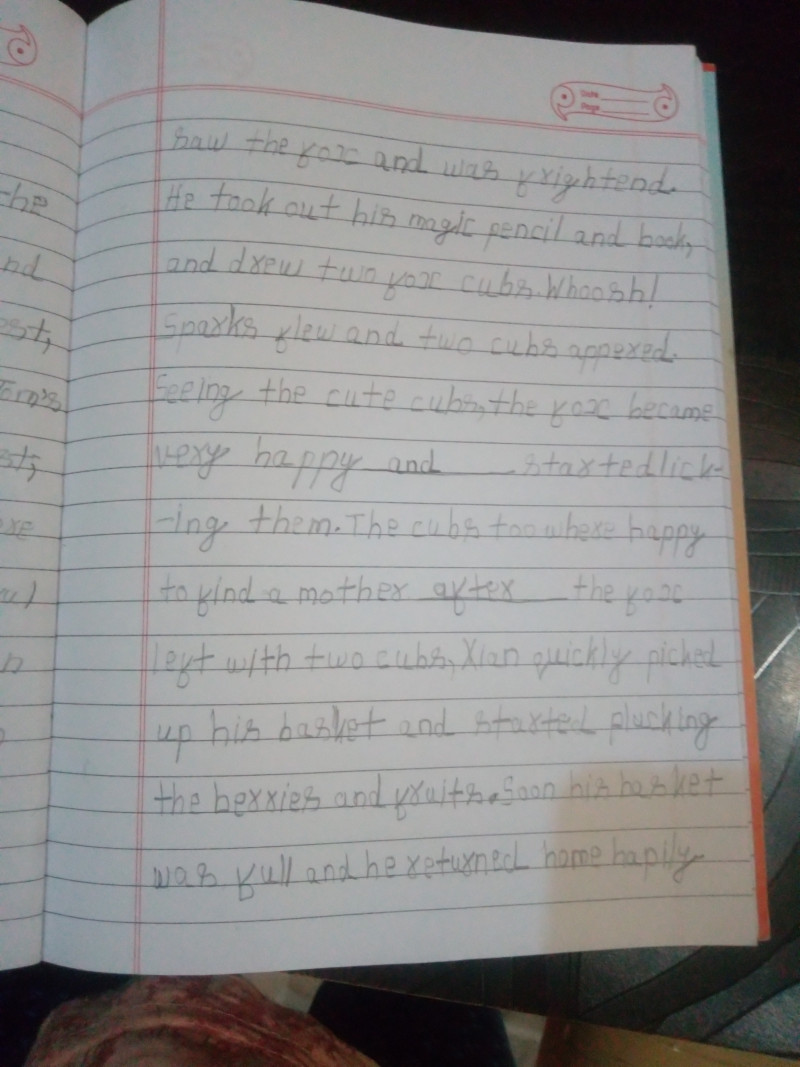 Date
Page
saw the fox and was frightend.
He took out his magic pencil and book,
and drew two fox cubs. Whoosh!
Sparks flew and two cubs appered.
Seeing the cute cubs, the fox became
very happy and started lick-
-ing them. The cubs too where happy
to find a mother after the fox
left with two cubs, Xian quickly picked
up his basket and started plucking
the berries and fruits. Soon his basket
was full and he returned home hapily